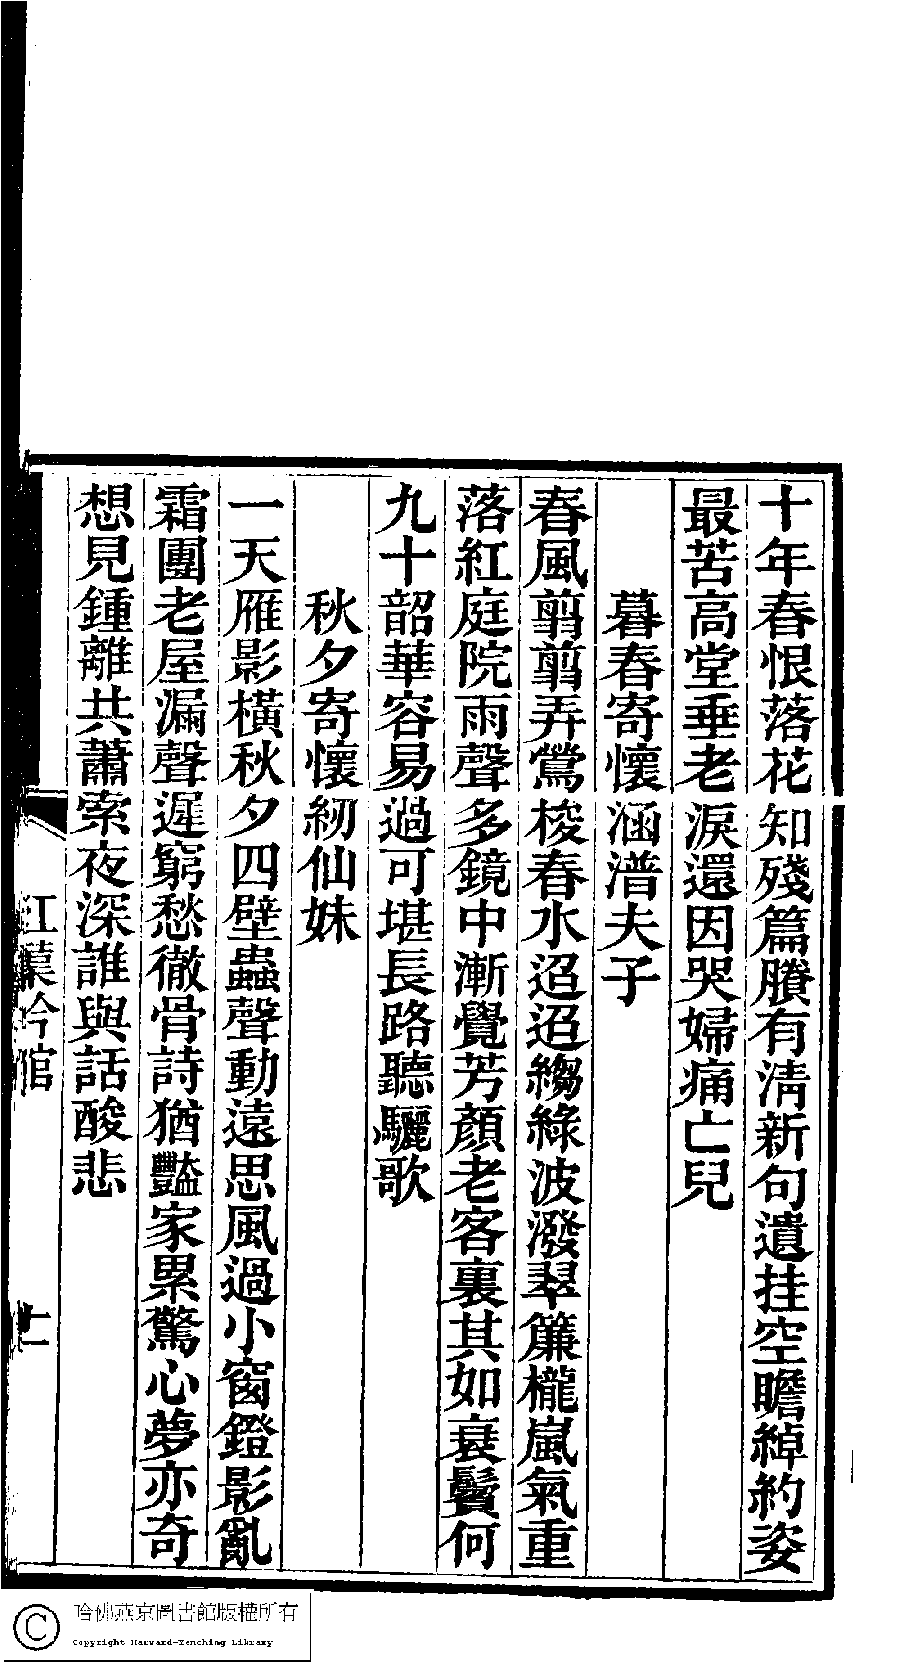 十年春恨落花知殘篇賸有淸新句遺挂空瞻綽約姿
最苦高堂垂老淚還因哭婦痛亡兒
暮春寄懷涵潽夫子
春風剪剪弄鶯梭春水迢迢縐綠波潑翠簾櫳嵐氣重
落紅庭院雨聲多鏡中漸覺芳顏老客裏其如衰鬢何
九十韶華容易過可堪長路聽驪歌
秋夕寄懷紉仙妹
一天雁影橫秋夕四壁蟲聲動遠思風過小窗鐙影亂
霜團老屋漏聲遲窮愁徹骨詩猶豔家累驚心夢亦奇
想見鍾離共蕭索夜深誰與話酸悲
哈佛燕京圖書館版權所有
Copyright Harvard-Yenching Library